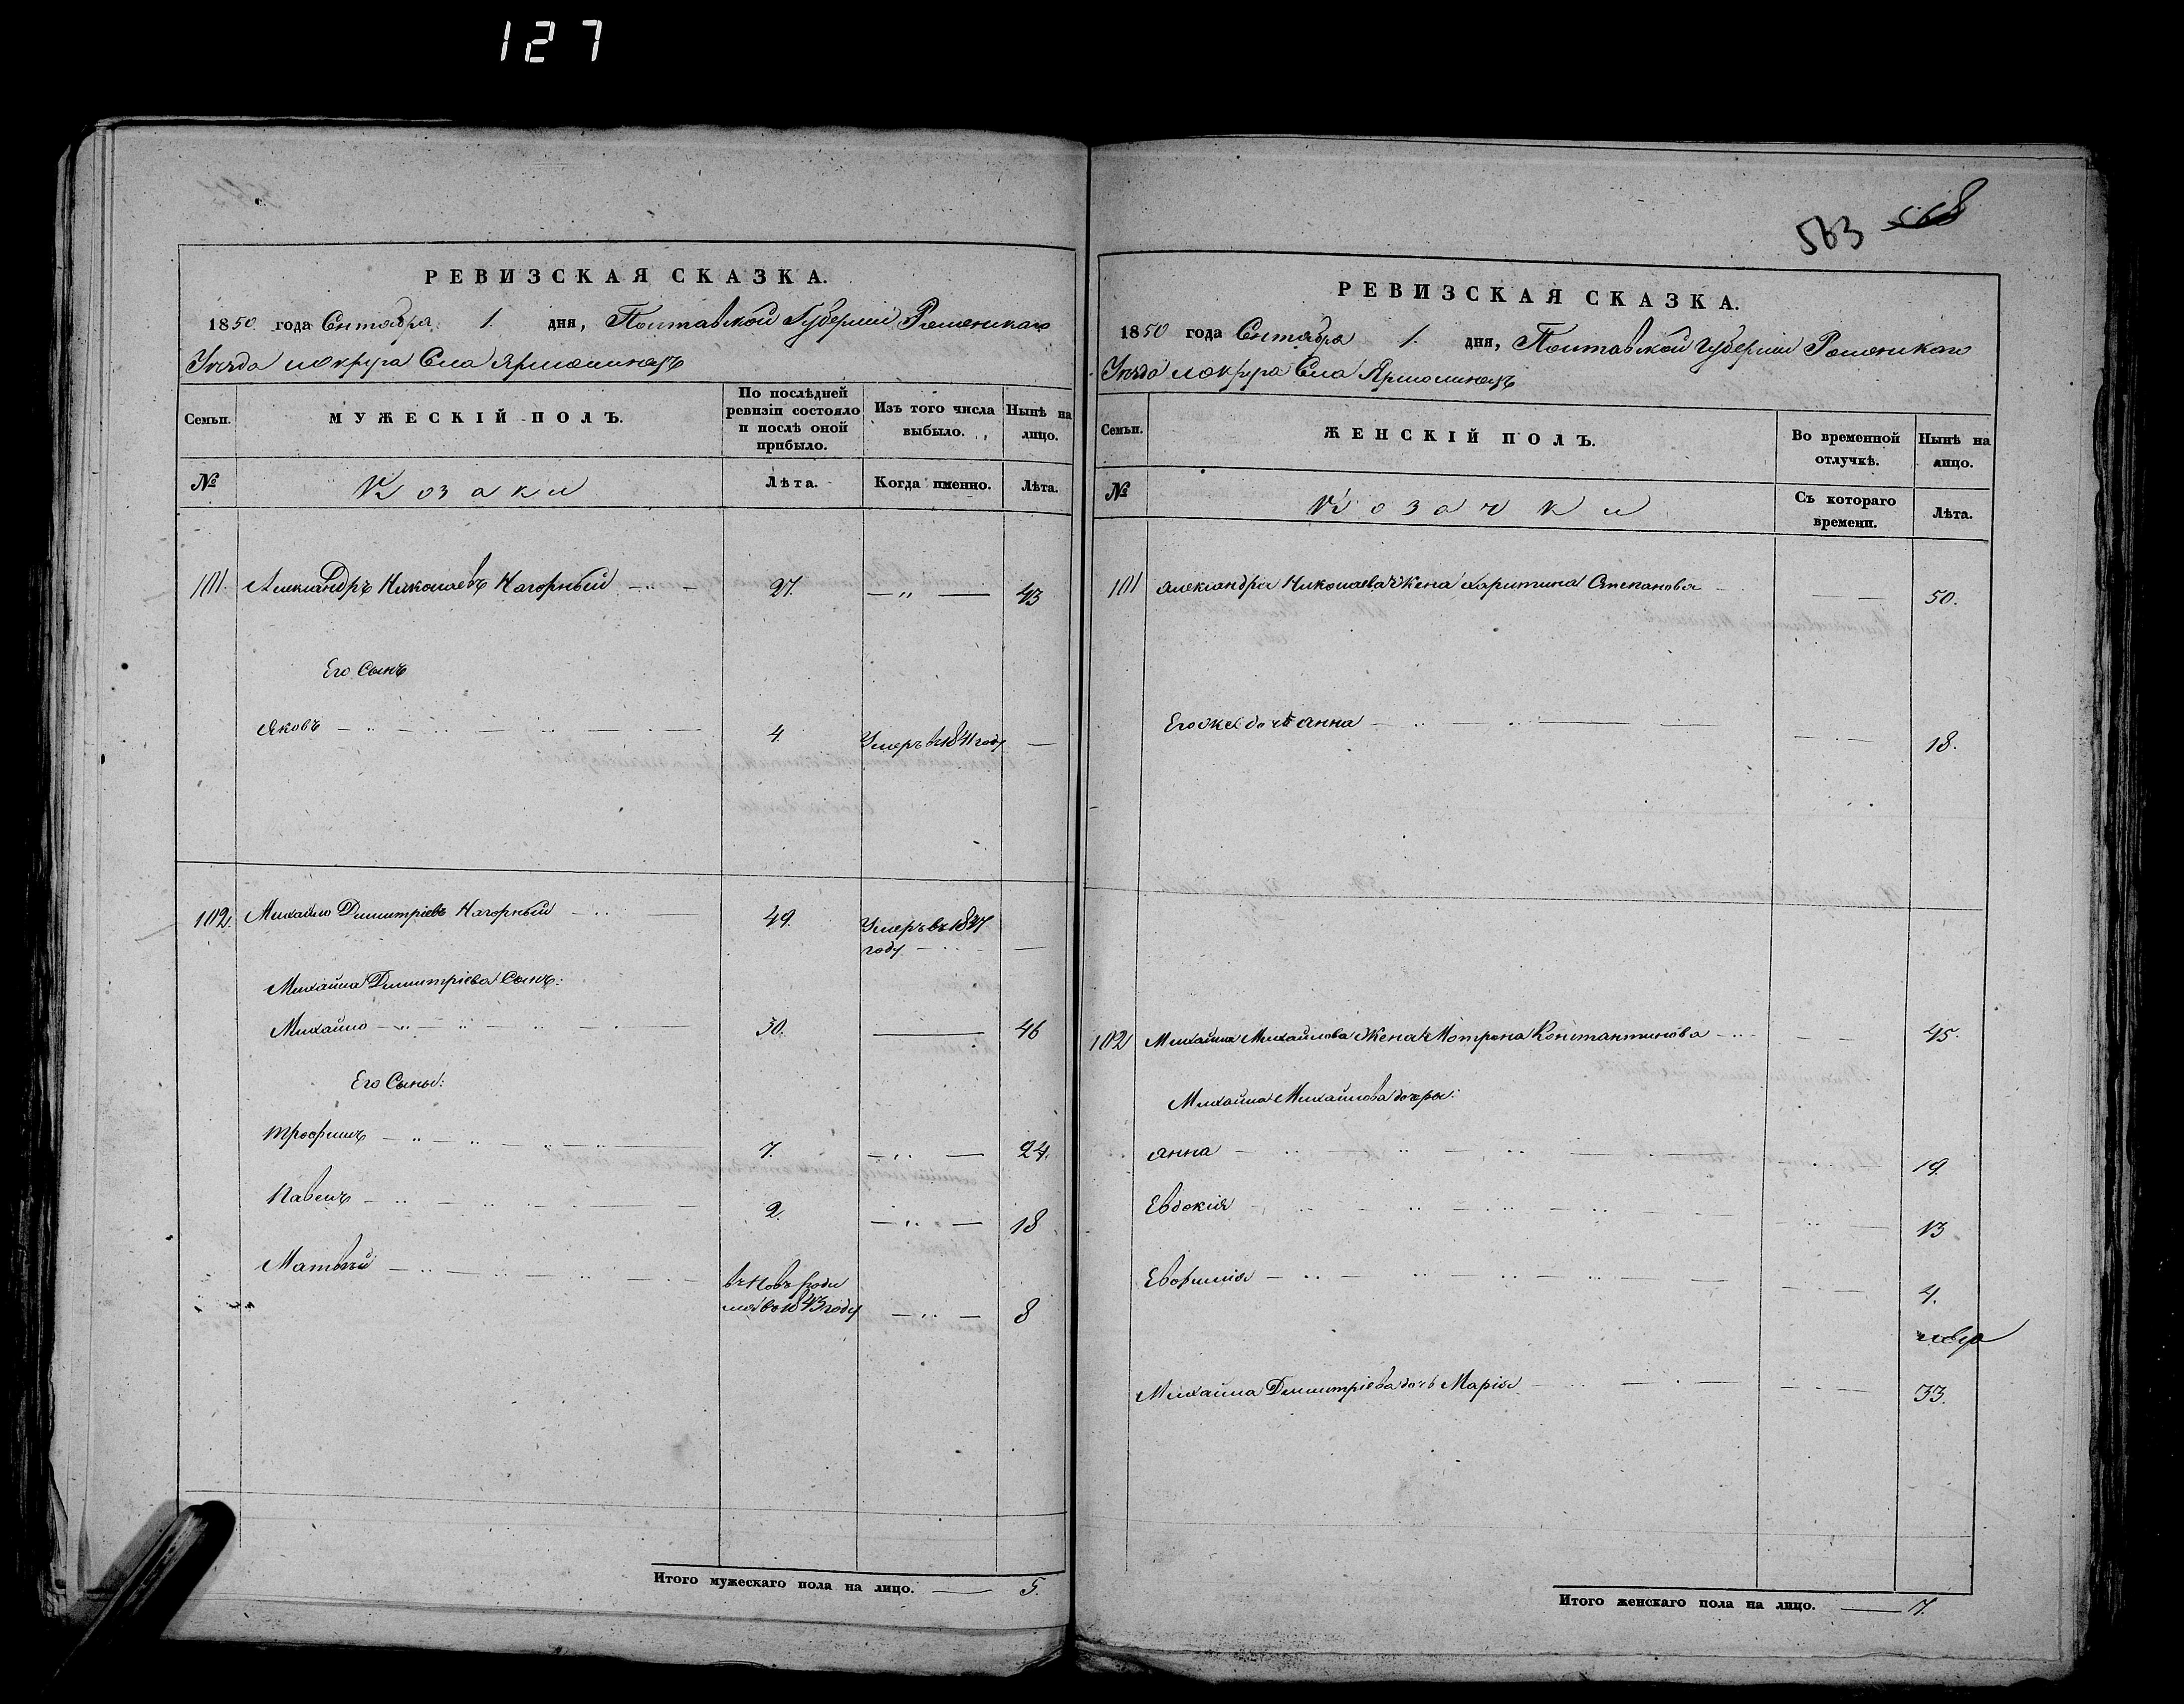 127
РЕВИЗСКАЯ СКАЗКА.
1850 года Сентября 1. дня, Полтавской Губерніи Роменскаго
Уезда Села Ярмолинецъ
Семьи.
МУЖЕСКІЙ ПОЛЪ.
По послѣдней ревизіи состояло и послѣ оной прибыло.
Изъ того числа выбыло.
Нынѣ на лицо.
№
Козаки
Лѣта.
Когда именно.
Лѣта.
101. Александръ Николаевъ Нагорный 27. 43
Его Сынъ
Яковъ 4. Умеръ въ 1841 году
102. Михайло Димитріевъ Нагорный 49. Умеръ въ 1847
году
Михайла Димитріева Сынъ:
Михайло 30. 46
Его Сыны:
Трофимъ 7. 24.
Павелъ 2. 18
Матвѣй
въ 1843 году 8
Итого мужескаго пола на лицо. 5.
563 568
РЕВИЗСКАЯ СКАЗКА.
1850 года Сентября 1. дня, Полтавской Губерніи Роменскаго
Уезда Села Ярмолинецъ
Семьи.
ЖЕНСКІЙ ПОЛЪ.
Во временной отлучкѣ.
Нынѣ на лицо.
№
Козачки
Съ котораго времени.
Лѣта.
101 Александра Николаева Жена Харитина Степанова 50.
Его же дочь Анна 18.
102 Михайла Михайлова Жена Мотрона Константинова 45.
Михайла Михайлова дочери:
Анна 19.
Евдокія 13
Евфимія 4.
Михайла Димитріева дочь Марія 33.
Итого женскаго пола на лицо. 7.